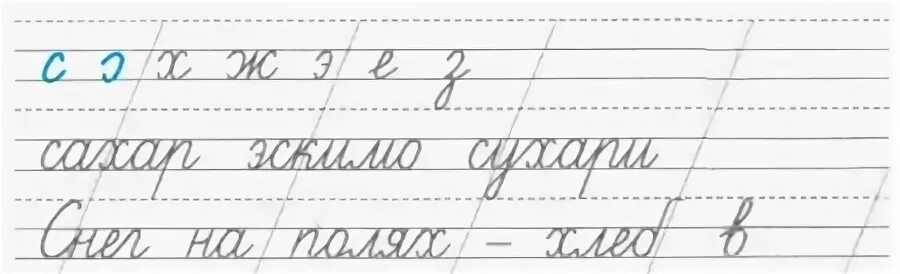 с ɔ х ж э е з
сахар эскимо сухари
Снег на полях – хлеб в